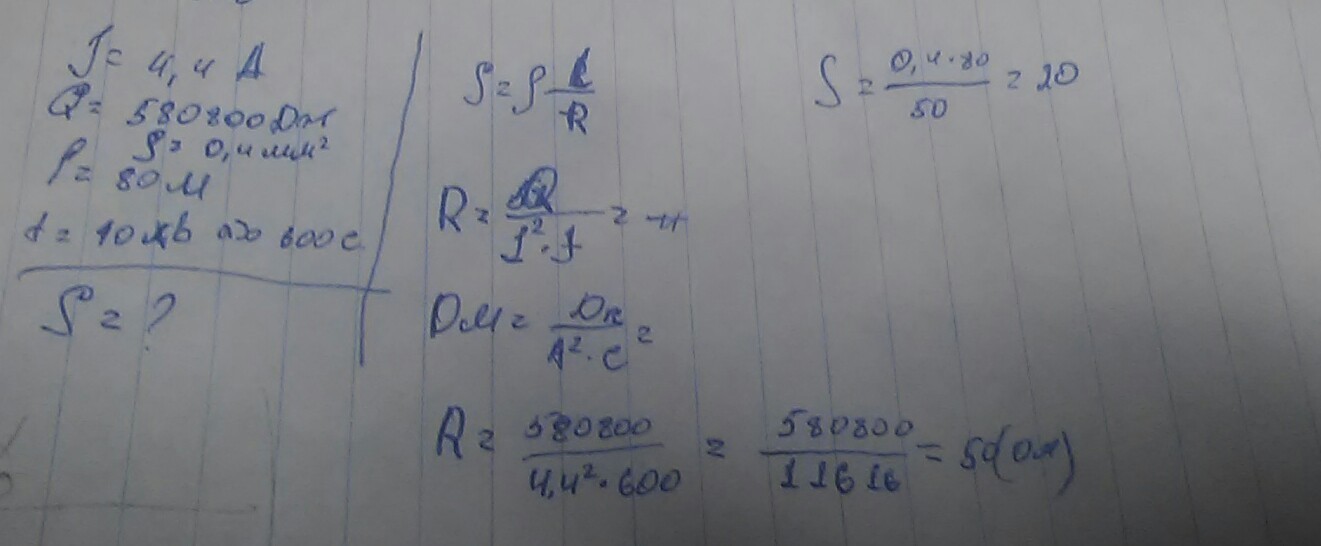 I = 4,4 А
Q = 580800 Дж
S = 0,4 мм²
l = 80 м
t = 10 хв = 600 с
S = ?
S = ρ l/R
R = Q/I²·t =
Ом = Дж/А²·с =
R = 580800/4,4²·600 = 580800/11616 = 50 (Ом)
S = 0,4·80/50 = 20